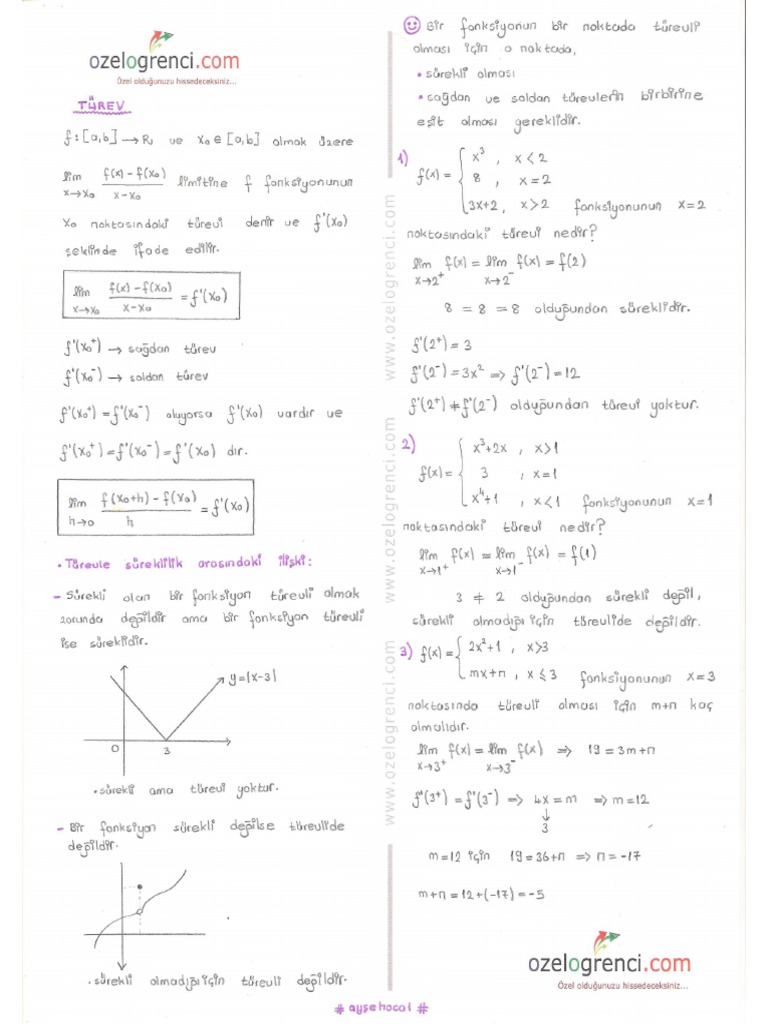 ozelogrenci.com
Özel olduğunuzu hissedeceksiniz...
TÜREV
f:[a,b] → R ve x₀ ∈ [a,b] olmak üzere
lim x→x₀ f(x) - f(x₀) / x - x₀ limitine f fonksiyonunun
x₀ noktasındaki türevi denir ve f'(x₀)
şeklinde ifade edilir.
lim x→x₀ f(x) - f(x₀) / x - x₀ = f'(x₀)
f'(x₀⁺) → sağdan türev
f'(x₀⁻) → soldan türev
f'(x₀⁺) = f'(x₀⁻) oluyorsa f'(x₀) vardır ve
f'(x₀⁺) = f'(x₀⁻) = f'(x₀) dır.
lim h→0 f(x₀+h) - f(x₀) / h = f'(x₀)
• Türevle süreklilik arasındaki ilişki:
- Sürekli olan bir fonksiyon türevli olmak
zorunda değildir ama bir fonksiyon türevli
ise süreklidir.
y=|x-3|
0 3
• sürekli ama türevi yoktur.
- Bir fonksiyon sürekli değilse türevlide
değildir.
• sürekli olmadığı için türevli değildir.
www.ozelogrenci.com www.ozelogrenci.com www.ozelogrenci.com
Bir fonksiyonun bir noktada türevli
olması için o noktada,
• sürekli olması
• sağdan ve soldan türevlerin birbirine
eşit olması gereklidir.
1) f(x) = { x³ , x < 2
8 , x = 2
3x+2 , x > 2 fonksiyonunun x=2
noktasındaki türevi nedir?
lim x→2⁺ f(x) = lim x→2⁻ f(x) = f(2)
8 = 8 = 8 olduğundan süreklidir.
f'(2⁺) = 3
f'(2⁻) = 3x² ⇒ f'(2⁻) = 12
f'(2⁺) ≠ f'(2⁻) olduğundan türevi yoktur.
2) f(x) = { x³+2x , x>1
3 , x=1
x⁴+1 , x<1 fonksiyonunun x=1
noktasındaki türevi nedir?
lim x→1⁺ f(x) = lim x→1⁻ f(x) = f(1)
3 ≠ 2 olduğundan sürekli değil,
sürekli olmadığı için türevlide değildir.
3) f(x) = { 2x²+1 , x>3
mx+n , x ≤ 3 fonksiyonunun x=3
noktasında türevli olması için m+n kaç
olmalıdır.
lim x→3⁺ f(x) = lim x→3⁻ f(x) ⇒ 19 = 3m+n
f'(3⁺) = f'(3⁻) ⇒ 4x = m ⇒ m = 12
↓
3
m=12 için 19=36+n ⇒ n = -17
m+n = 12+(-17) = -5
ozelogrenci.com
Özel olduğunuzu hissedeceksiniz...
# ayşehoca1 #